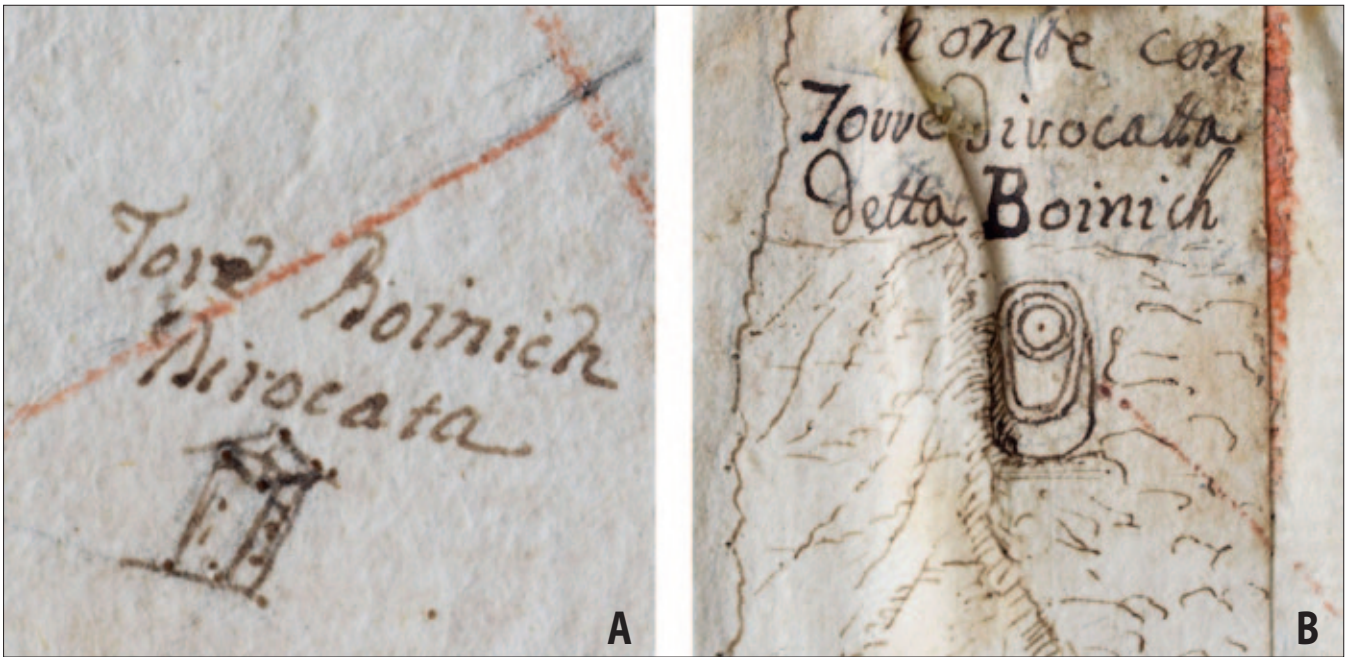 Torre Boinich
Dirocata
A
Monte con
Torre Dirocatta
detta Boinich
B